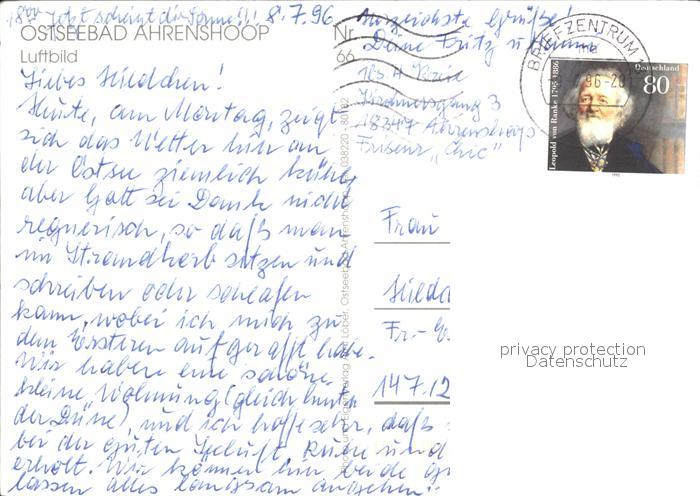 18⁰⁰ Jetzt scheint die Sonne!!! 8.7.96
OSTSEEBAD AHRENSHOOP Nr.
Luftbild 66
Liebes Hildchen!
Heute, am Montag, zeigt
sich das Wetter hier an
der Ostsee ziemlich kühl,
aber Gott sei Dank nicht
regnerisch, so daß man
im Strandkorb sitzen und
schreiben oder schlafen
kann, wobei ich mich zu
dem Ersteren aufgerafft habe.
Wir haben eine schöne
kleine Wohnung (gleich hinter
der Düne), und ich hoffe sehr, daß
bei der guten Seeluft, Ruhe und
erholt. Wir können hier beide
lassen alles langsam angehen!
Herzlichste Grüße!
Deine Fritz u.
bei H.
Kirchnersgang 3
18347 Ahrenshoop
Friseur "Chic"
BRIEFZENTRUM
96-20
Deutschland
80
Leopold von Ranke 1795-1886
1995
038220 - 80182
Ostseebad Ahrenshoop
Frau
Hilde
Fr.-
147.12
privacy protection
Datenschutz